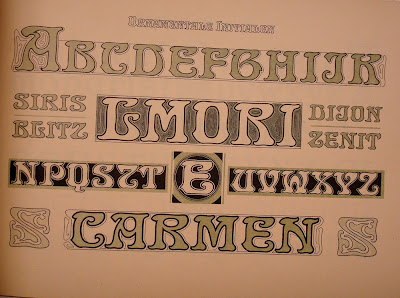 Ornamentale Initialen
ABCDEFGHIJK
SIRIS
BLITZ
LMORI
DIJON
ZENIT
NPQSZT E UVWXYZ
S CARMEN S